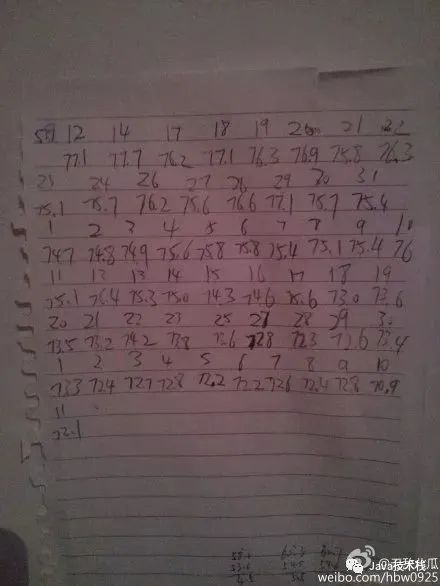 12 14 17 18 19 20 21 22
77.1 77.7 76.2 77.1 76.3 76.9 75.8 76.3
23 24 26 27 28 29 30 31
75.1 75.7 76.2 75.6 76.6 77.1 75.7 75.4
1 2 3 4 5 6 7 8 9 10
74.7 74.8 74.9 75.6 75.8 75.8 75.4 75.1 75.4 76
11 12 13 14 15 16 17 18 19
75.1 76.4 75.3 75.0 74.3 74.6 75.6 73.0 73.6
20 21 22 23 25 27 28 29 30
73.5 73.2 74.2 73.8 73.6 72.8 72.3 72.6
1 2 3 4 5 6 7 8 9 10
73.3 72.4 72.7 72.8 72.2 72.2 72.6 72.4 72.8 70.9
11
72.1
Java技术栈
weibo.com/hbw0925